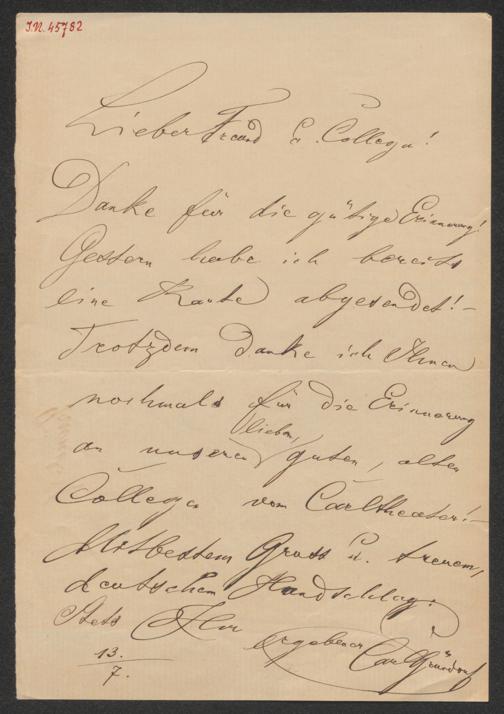 I.N. 45782
Lieber Freund u. Collega!
Danke für die gütige Erinnerung!
Gestern habe ich bereits
eine Karte abgesendet! –
Trotzdem danke ich Ihnen
nochmals für die Erinnerung
lieben,
an unseren guten, alten
Collegen vom Carltheater! –
Mit bestem Gruss u. treuem,
deutschem Handschlag:
Stets Ihr
ergebener
Carl Gründorf
13.
7.